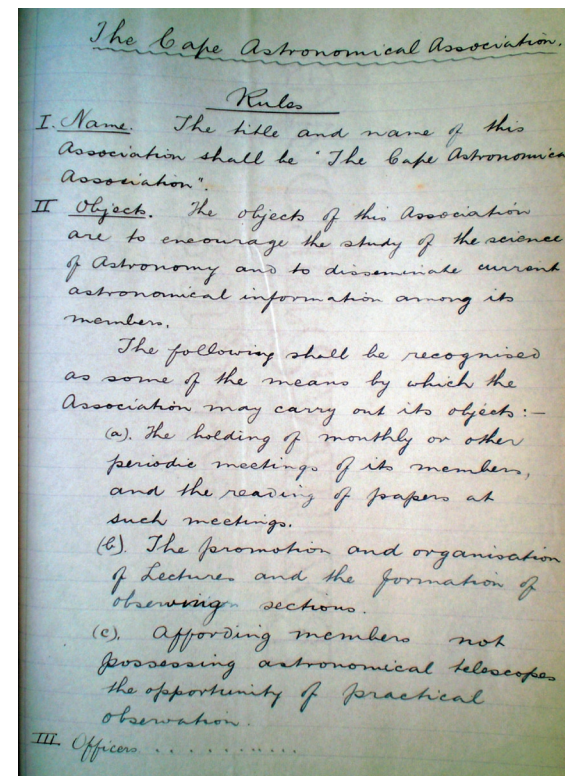 The Cape Astronomical Association.
Rules
I. Name. The title and name of this
Association shall be "The Cape Astronomica
Association".
II Objects. The objects of this Association
are to encourage the study of the science
of Astronomy and to disseminate current
astronomical information among its
members.
The following shall be recognised
as some of the means by which the
Association may carry out its objects:—
(a). The holding of monthly or other
periodic meetings of its members,
and the reading of papers at
such meetings.
(b). The promotion and organisation
of Lectures and the formation of
observing sections.
(c). Affording members not
possessing astronomical telescopes
the opportunity of practical
observation.
III. Officers ..........